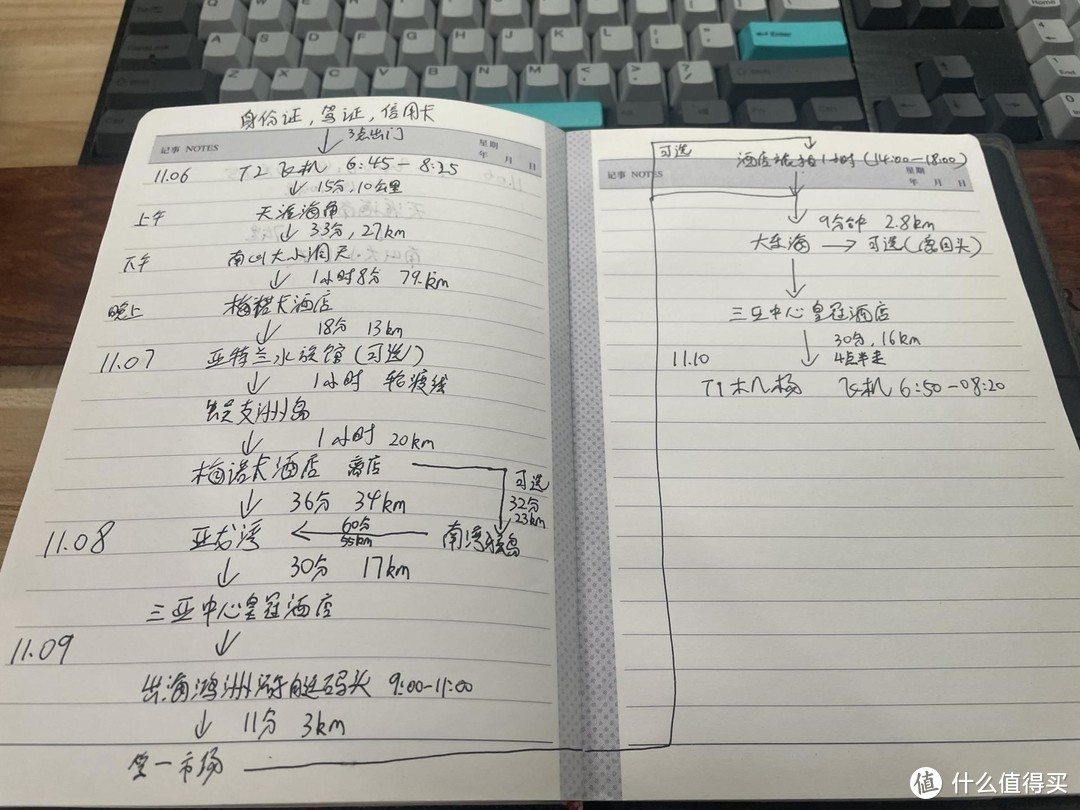 身份证，驾证，信用卡
↓ 3点出门
记事 NOTES 星期 年 月 日
11.06 T2 飞机 6:45-8:25
↓ 15分，10公里
上午 天涯海角
↓ 33分，27km
下午 南山大小洞天
↓ 1小时8分 79km
晚上 梅诺卡酒店
↓ 18分 13km
11.07 亚特兰水族馆（可选）
↓ 1小时 轮渡线
蜈支洲岛
↓ 1小时 20km
梅诺卡酒店 离店
可选
32分
23km
↓ 36分 34km
11.08 亚龙湾 ← 60分 55km 南湾猴岛
↓ 30分 17km
三亚中心皇冠酒店
11.09 ↓
出海鸿洲游艇码头 9:00-11:00
↓ 11分 3km
第一市场
可选 酒店旅拍1小时（14:00-18:00）
记事 NOTES 星期 年 月 日
↓ 9分钟 2.8km
大东海 → 可选（鹿回头）
↓
三亚中心皇冠酒店
↓ 30分，16km
11.10 4点半走
T1机场 飞机 6:50-08:20
Q W E R T Y U I O P
A S D F G H J K L Enter
Z X C V B N M
4
1
End
值 什么值得买